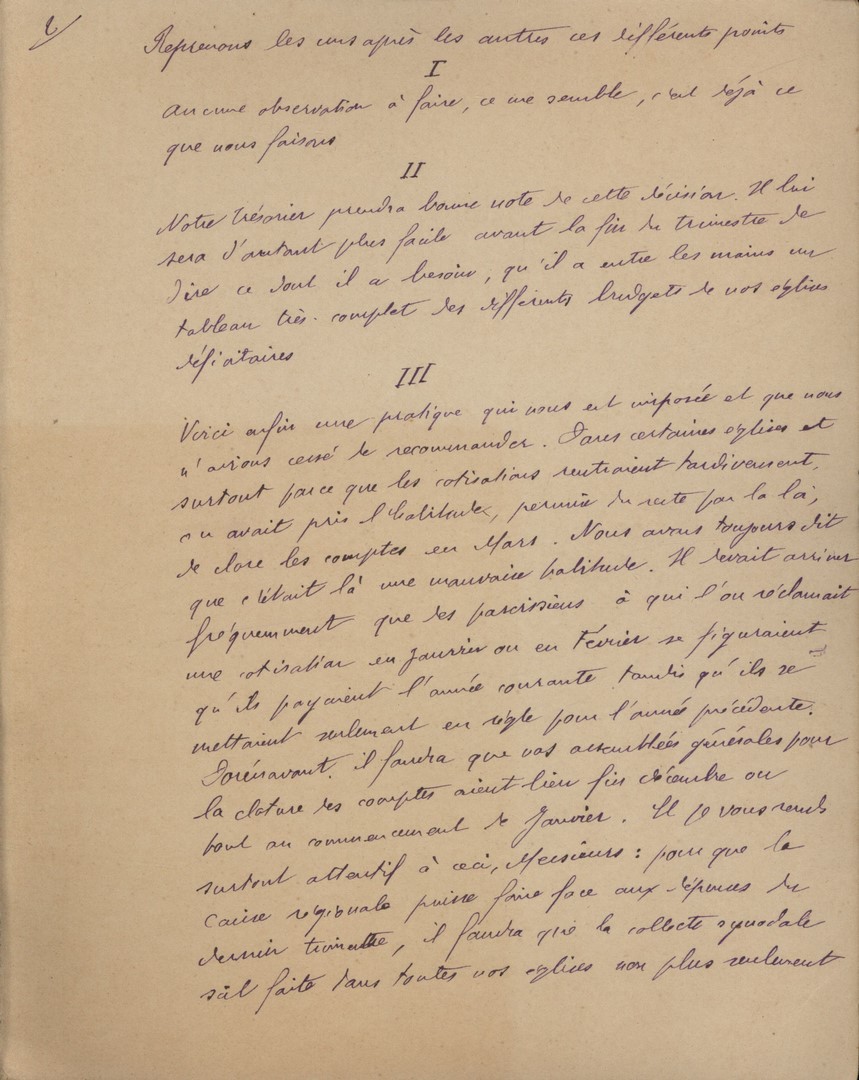 2/
Reprenons les uns après les autres ces différents points
I
Aucune observation à faire, ce me semble, c'est déjà ce
que nous faisons
II
Notre trésorier prendra bonne note de cette décision. Il lui
sera d'autant plus facile avant la fin du trimestre de
dire ce dont il a besoin, qu'il a entre les mains un
tableau très-complet des différents budgets de nos églises
déficitaires
III
Voici enfin une pratique qui nous est imposée et que nous
n'avions cessé de recommander. Dans certaines églises et
surtout parce que les cotisations rentraient tardivement,
on avait pris l'habitude, permise du reste par la loi,
de clore les comptes en Mars. Nous avons toujours dit
que c'était là une mauvaise habitude. Il devait arriver
fréquemment que des paroissiens à qui l'on réclamait
une cotisation en Janvier ou en Février se figuraient
qu'ils payaient l'année courante tandis qu'ils se
mettaient seulement en règle pour l'année précédente.
Dorénavant, il faudra que vos assemblées générales pour
la cloture des comptes aient lieu fin décembre ou
tout au commencement de Janvier. Et je vous rends
surtout attentif à ceci, Messieurs : pour que la
Caisse régionale puisse faire face aux dépenses du
dernier trimestre, il faudra que la collecte synodale
soit faite dans toutes vos églises non plus seulement